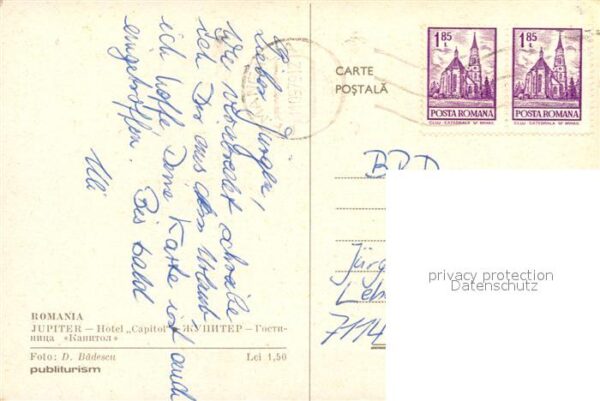 Lieber Jürgen,
Wie verabredet schreibe
ich Dir aus dem Urlaub
ich hoffe Deine Karte ist auch
eingetroffen. Bis bald
Uli
ROMANIA
JUPITER — Hotel „Capitol" ЖУПИТЕР — Гости-
ница «Капитол»
Foto: D. Bădescu Lei 1,50
publiturism
CARTE
POȘTALĂ
1,85 L
POSTA ROMANA
CLUJ CATEDRALA SF MIHAIL
1,85 L
POSTA ROMANA
CLUJ CATEDRALA SF MIHAIL
BRD
Jürg
7114
privacy protection
Datenschutz